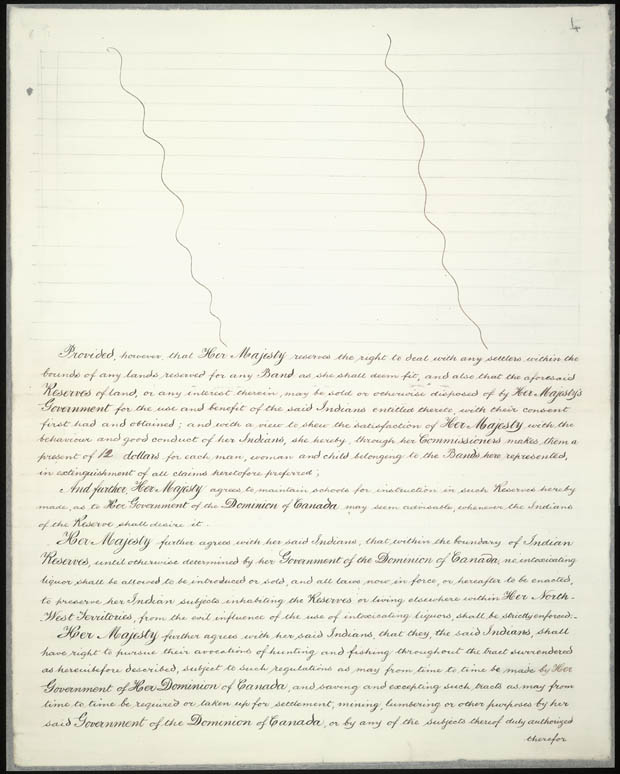 4
Provided, however, that Her Majesty reserves the right to deal with any settlers within the
bounds of any lands reserved for any Band as she shall deem fit, and also that the aforesaid
Reserves of land, or any interest therein, may be sold or otherwise disposed of by Her Majesty's
Government for the use and benefit of the said Indians entitled thereto, with their consent
first had and obtained; and with a view to shew the satisfaction of Her Majesty with the
behaviour and good conduct of her Indians, she hereby, through her Commissioners, makes them a
present of 12 dollars for each man, woman and child belonging to the Bands here represented,
in extinguishment of all claims heretofore preferred;
And further, Her Majesty agrees to maintain schools for instruction in such Reserves hereby
made, as to Her Government of the Dominion of Canada may seem advisable, whenever the Indians
of the Reserve shall desire it.
Her Majesty further agrees with her said Indians, that within the boundary of Indian
Reserves, until otherwise determined by her Government of the Dominion of Canada, no intoxicating
liquor shall be allowed to be introduced or sold, and all laws now in force, or hereafter to be enacted,
to preserve her Indian subjects inhabiting the Reserves or living elsewhere within Her North-
West Territories, from the evil influence of the use of intoxicating liquors, shall be strictly enforced:-
Her Majesty further agrees with her said Indians, that they, the said Indians, shall
have right to pursue their avocations of hunting and fishing throughout the tract surrendered
as hereinbefore described, subject to such regulations as may from time to time be made by Her
Government of Her Dominion of Canada, and saving and excepting such tracts as may from
time to time be required or taken up for settlement, mining, lumbering or other purposes by her
said Government of the Dominion of Canada, or by any of the subjects thereof duly authorized
therefor